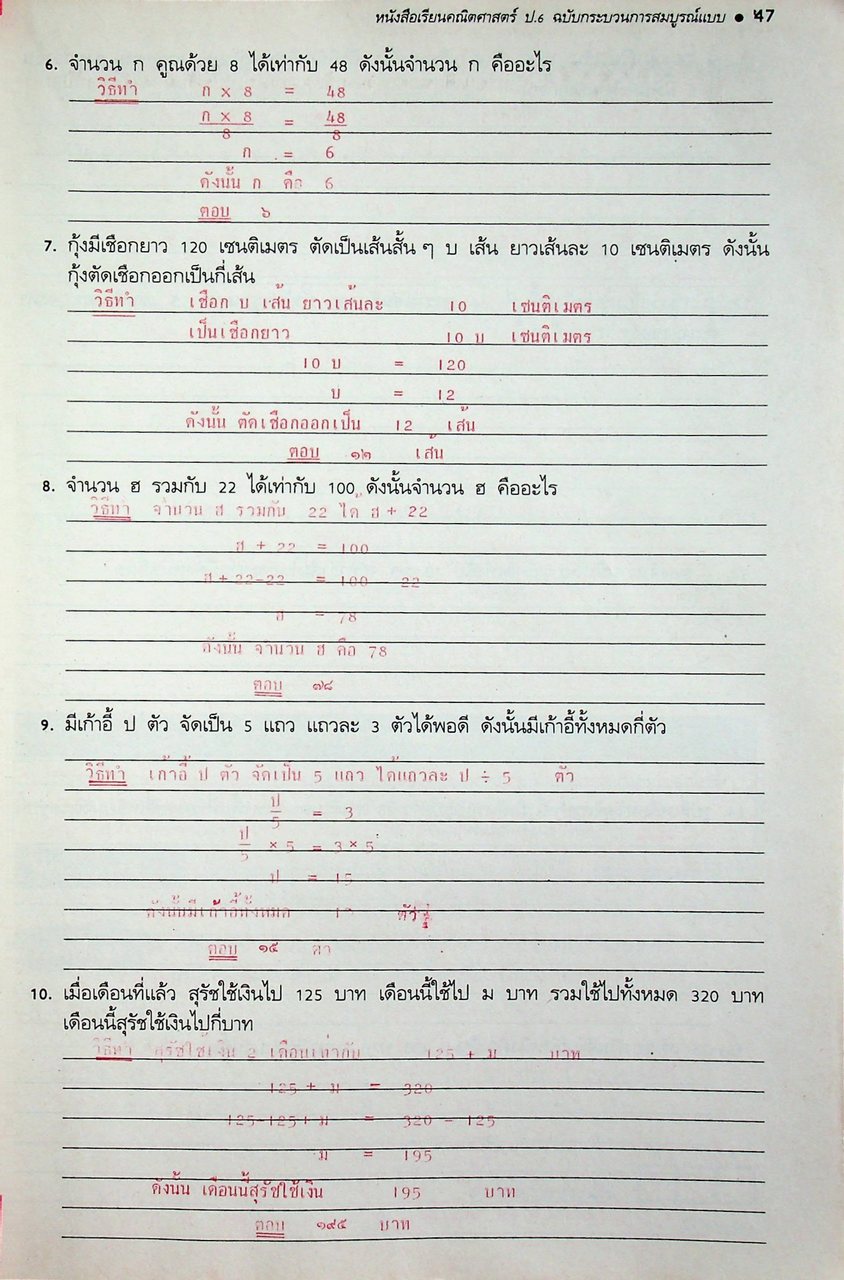 หนังสือเรียนคณิตศาสตร์ ป.6 ฉบับกระบวนการสมบูรณ์แบบ ● 47
6. จำนวน ก คูณด้วย 8 ได้เท่ากับ 48 ดังนั้นจำนวน ก คืออะไร
วิธีทำ ก × 8 = 48
ก × 8 = 48
8 8
ก = 6
ดังนั้น ก คือ 6
ตอบ ๖
7. กุ้งมีเชือกยาว 120 เซนติเมตร ตัดเป็นเส้นสั้นๆ บ เส้น ยาวเส้นละ 10 เซนติเมตร ดังนั้น
กุ้งตัดเชือกออกเป็นกี่เส้น
วิธีทำ เชือก บ เส้น ยาวเส้นละ 10 เซนติเมตร
เป็นเชือกยาว 10 บ เซนติเมตร
10 บ = 120
บ = 12
ดังนั้น ตัดเชือกออกเป็น 12 เส้น
ตอบ ๑๒ เส้น
8. จำนวน ฮ รวมกับ 22 ได้เท่ากับ 100 ดังนั้นจำนวน ฮ คืออะไร
วิธีทำ จำนวน ฮ รวมกับ 22 ได้ ฮ + 22
ฮ + 22 = 100
ฮ + 22-22 = 100 - 22
ฮ = 78
ดังนั้น จำนวน ฮ คือ 78
ตอบ ๗๘
9. มีเก้าอี้ ป ตัว จัดเป็น 5 แถว แถวละ 3 ตัวได้พอดี ดังนั้นมีเก้าอี้ทั้งหมดกี่ตัว
วิธีทำ เก้าอี้ ป ตัว จัดเป็น 5 แถว ได้แถวละ ป ÷ 5 ตัว
ป
5 = 3
ป
5 × 5 = 3 × 5
ป = 15
ดังนั้นมีเก้าอี้ทั้งหมด ตัว
ตอบ ๑๕
10. เมื่อเดือนที่แล้ว สุรัชใช้เงินไป 125 บาท เดือนนี้ใช้ไป ม บาท รวมใช้ไปทั้งหมด 320 บาท
เดือนนี้สุรัชใช้เงินไปกี่บาท
วิธีทำ สุรัชใช้เงิน 2 เดือนเท่ากับ 125 + ม บาท
125 + ม = 320
125-125+ ม = 320 - 125
ม = 195
ดังนั้น เดือนนี้สุรัชใช้เงิน 195 บาท
ตอบ ๑๙๕ บาท